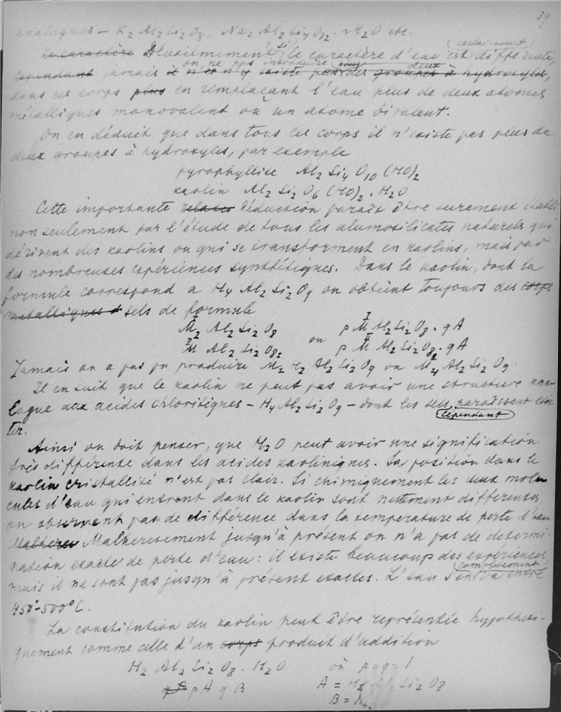 39
analogues – K₂Al₂Si₂O₈, Na₂Al₂Si₄O₁₂·nH₂O etc.
Le caractère Deuxièmement si le caractère d'eau est différente, (certainement)
cependant jamais il n'est n'y existe pas des groupes à hydroxyles, on ne pas introduire
dans ces corps plus en remplaçant l'eau plus de deux atomes
métalliques monovalent ou un atome bivalent.
On en déduit que dans tous les corps il n'existe pas plus de
deux groupes à hydroxyles, par exemple
pyrophyllite Al₂Si₄O₁₀(HO)₂
kaolin Al₂Si₂O₆(HO)₂·H₂O
Cette importante déduction parait être seurement établi
non seulement par l'étude de tous les alumosilicates naturels qui
dérivent des kaolins ou qui se transforment en kaolins, mais par
de nombreuses expériences synthétiques. Dans le kaolin, dont la
formule correspond a H₄Al₂Si₂O₉ on obtient toujours des corps
metalliques d sels de formule
M₂Al₂Si₂O₈ ou p M Al₂Si₂O₈·qA
M Al₂Si₂O₈, p M Al₂Si₂O₈·qA
Jamais on a pas pu produire M₂Al₂Si₂O₉ ou M₄Al₂Si₂O₉.
Il en suit que le kaolin ne peut pas avoir une structure ana-
logue aux acides chloritiques – H₄Al₂Si₂O₉ – dont les sels paraissent exis-
ter. cependant
Ainsi on doit penser, que H₂O peut avoir une signification
très différente dans les acides kaoliniques. Sa position dans le
kaolin cristallisé n'est pas clair. Si chimiquement les deux molé-
cules d'eau qui entrent dans le kaolin sont nettement différentes
on observent pas de différence dans la temperature de perte d'eau
Malheureusement jusqu'à présent on n'a pas de determi-
nation exacte de perte d'eau: il existe beaucoup des expériences
mais il ne sont pas jusqu'à présent exactes. L'eau s'en va entre (complètement)
450°-500°C.
La constitution du kaolin peut être représentée hypotheti-
quement comme celle d'un corps produit d'addition
H₂Al₂Si₂O₈·H₂O où p=q=1
pA qB A = H₂Al₂Si₂O₈
B =